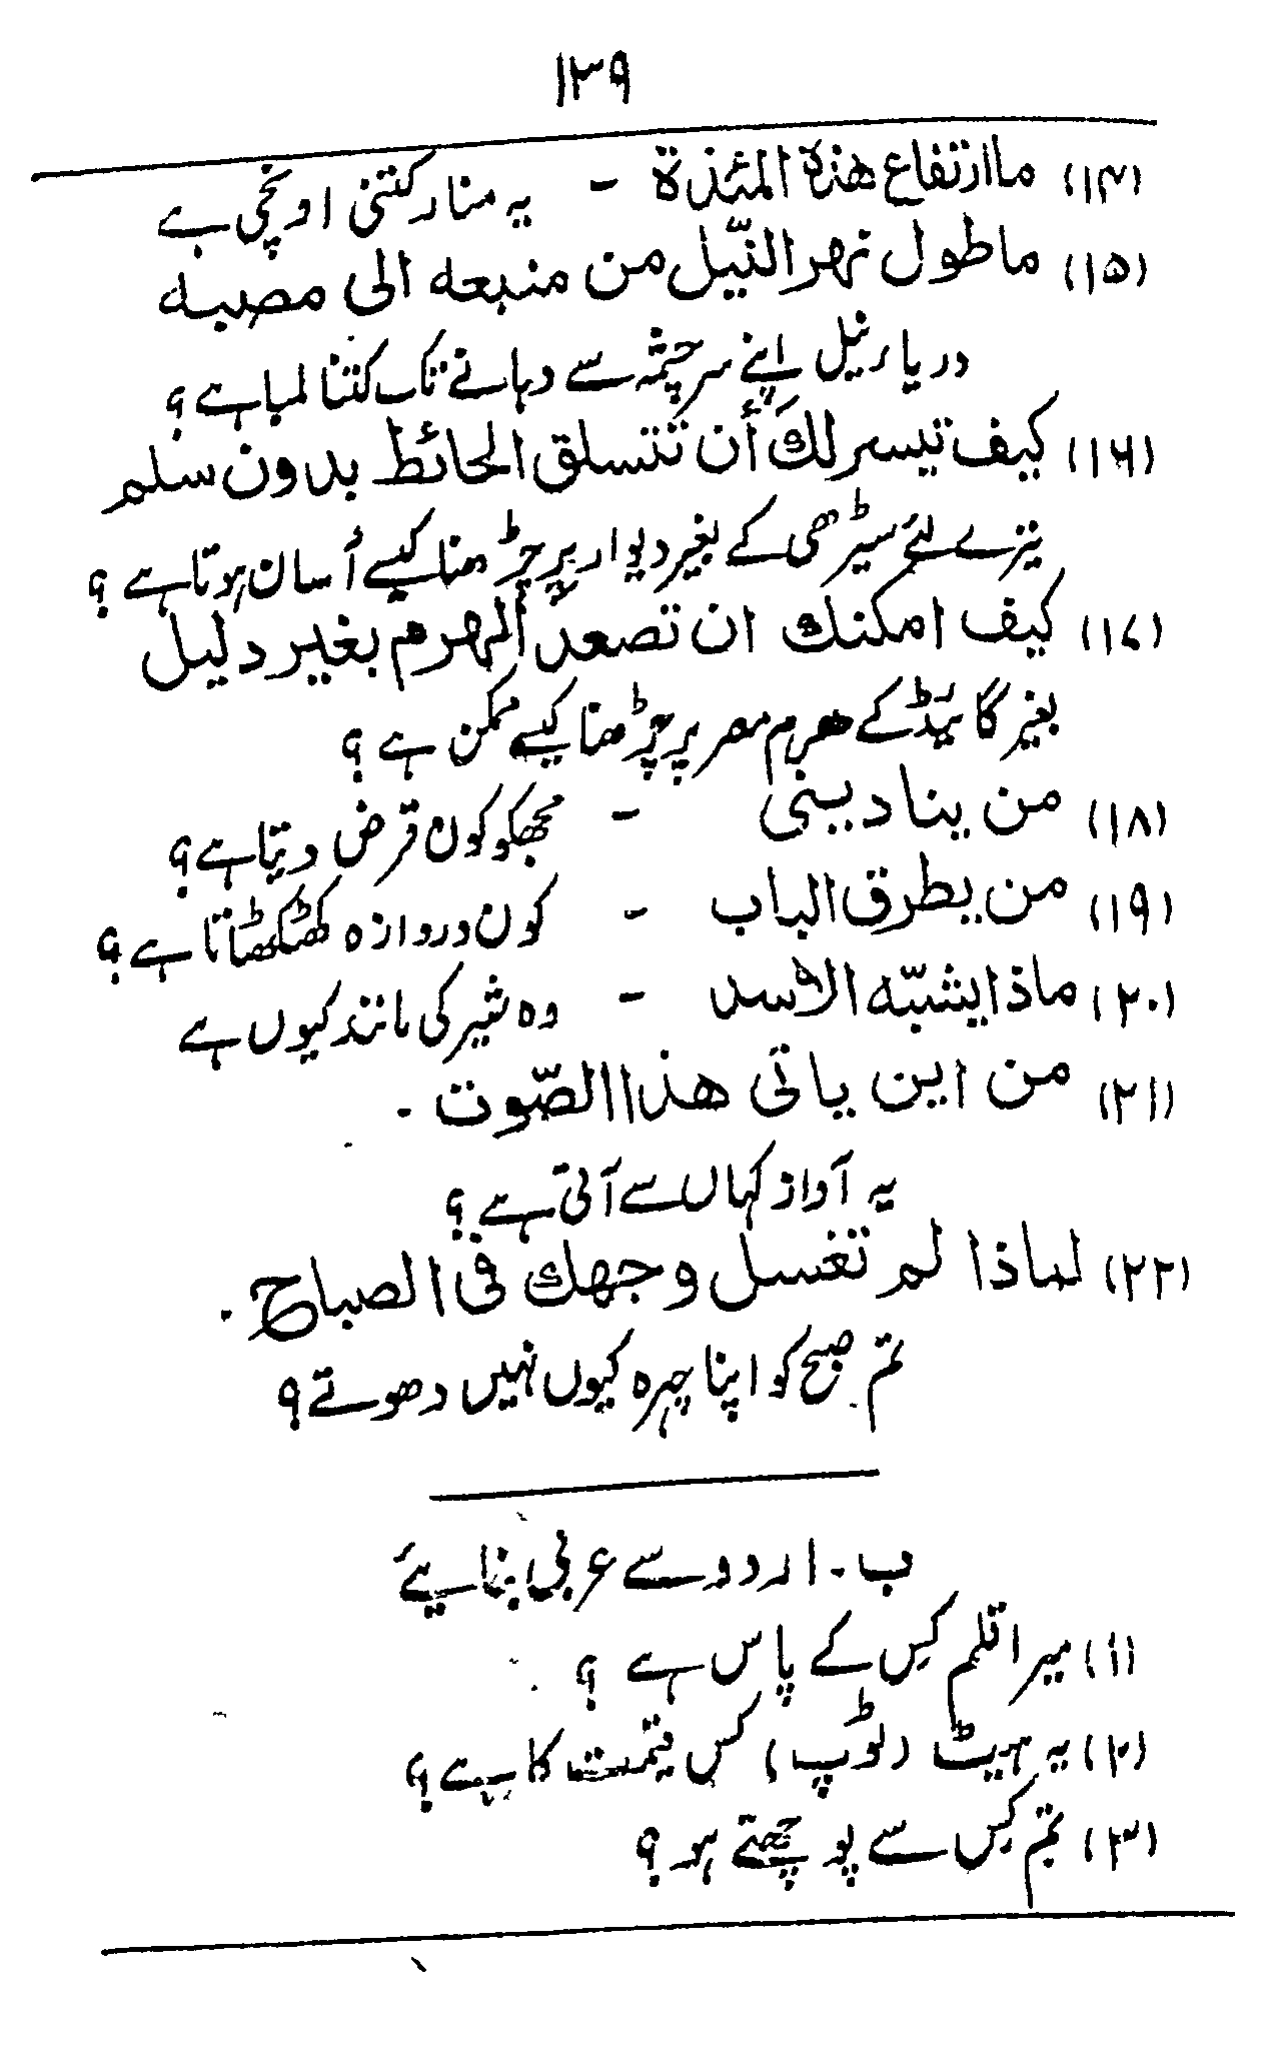 ۱۳۹
(۱۴) ما ارتفاع هذه المئذنة - یہ منار کتنی اونچی ہے
(۱۵) ما طول نهر النّيل من منبعه الى مصبه
دریا نیل اپنے سرچشمہ سے دہانے تک کتنا لمبا ہے؟
(۱۶) كيف تيسر لكَ أن تتسلق الحائط بدون سلم
تیرے لئے سیڑھی کے بغیر دیوار پر چڑھنا کیسے آسان ہوتا ہے؟
(۱۷) كيف امكنك ان تصعد الهرم بغير دليل
بغیر گائیڈ کے ھرم مصر پر چڑھنا کیسے ممکن ہے؟
(۱۸) من ينادينى - مجھکو کون قرض دیتا ہے؟
(۱۹) من يطرق الباب - کون دروازہ کھٹکھٹاتا ہے؟
(۲۰) ماذا يشبّه الاسد - وہ شیر کی مانند کیوں ہے
(۲۱) من اين ياتى هذا الصّوت ۔
یہ آواز کہاں سے آتی ہے؟
(۲۲) لماذا لم تغسل وجهك فى الصباح ۔
تم صبح کو اپنا چہرہ کیوں نہیں دھوتے؟
ب ۔ اردو سے عربی بنایئے
(۱) میرا قلم کِس کے پاس ہے؟
(۲) یہ ہیٹ (ٹوپ) کس قیمت کا ہے؟
(۳) تم کِس سے پوچھتے ہو؟